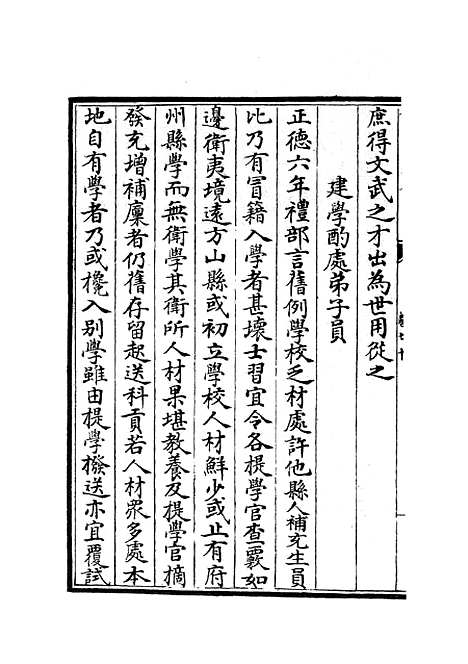 庶得文武之才出為世用從之
建學酌處弟子員
正德六年禮部言舊例學校乏材處許他縣人補充生員
比乃有冒籍入學者甚壞士習宜令各提學官查覈如
邊衛夷境遠方山縣或初立學校人材鮮少或止有府
州縣學而無衛學其衛所人材果堪教養及提學官摘
發充增補廩者仍舊存留起送科貢若人材眾多處本
地自有學者乃或攙入別學雖由提學撥送亦宜覆試